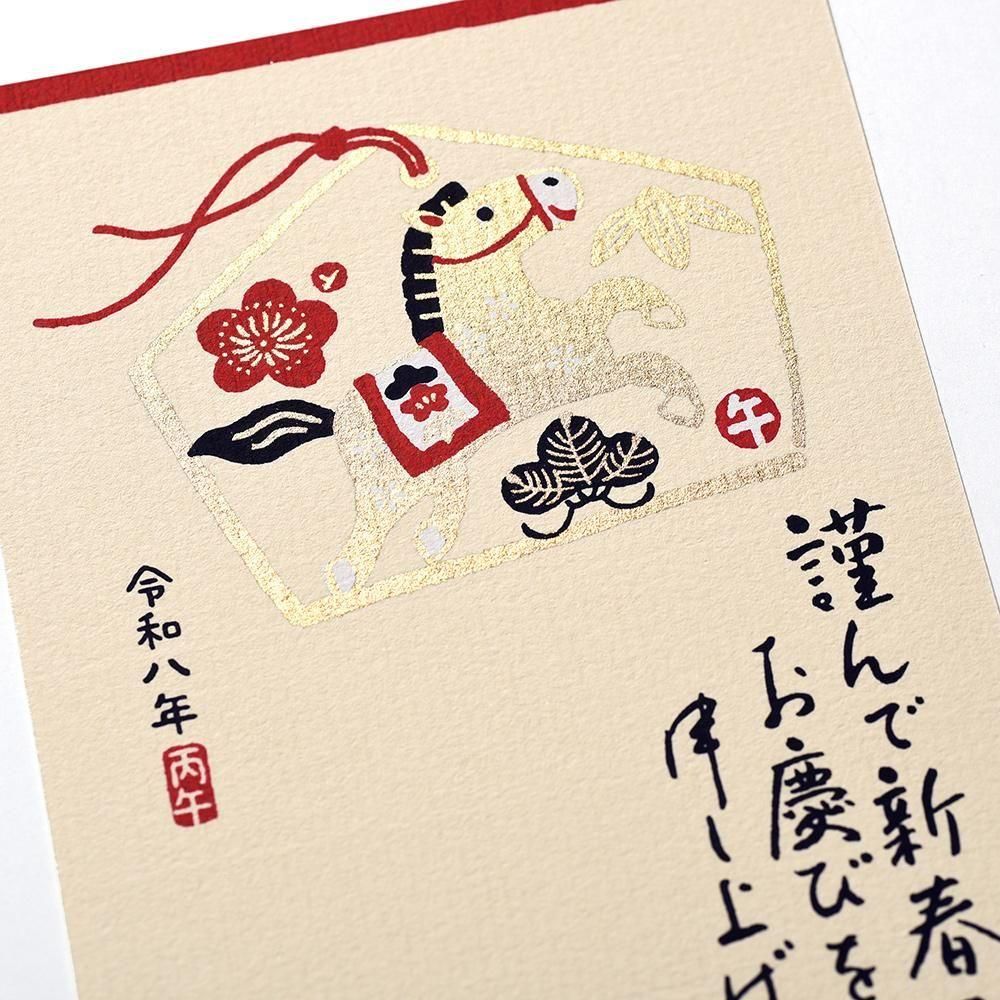 午
謹んで新春
お慶びを
申し上げ
令和八年
丙午